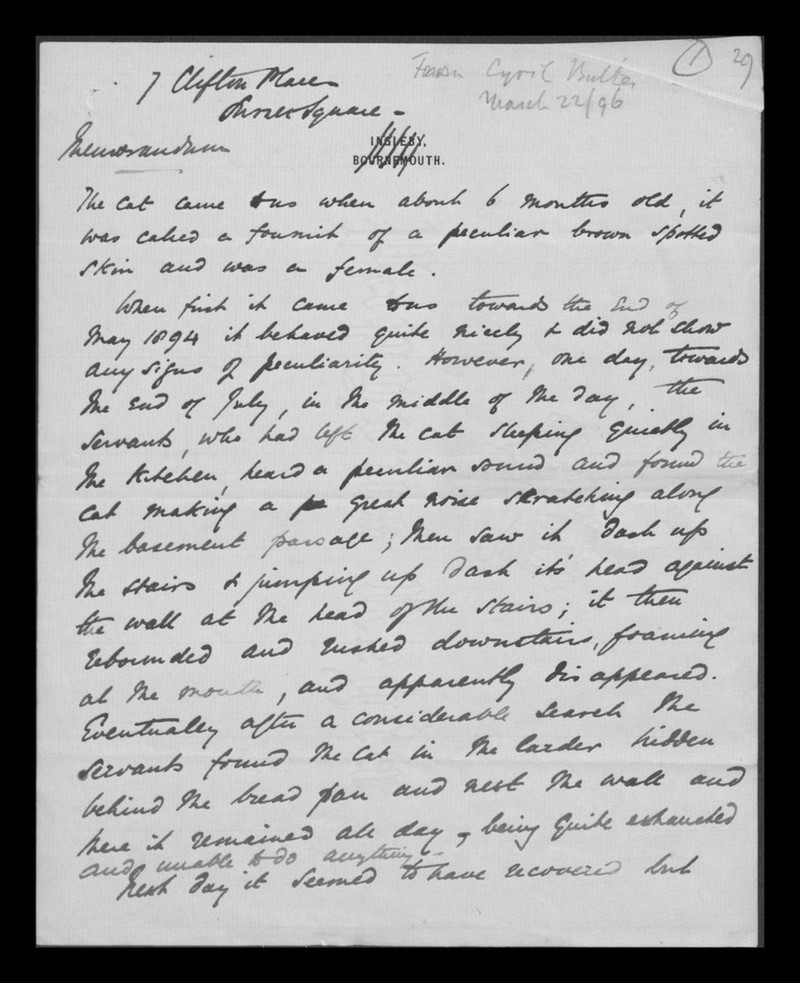 1 29
From Cyril Butler
March 22/96
7 Clifton Place
Sussex Square -
Memorandum
INGLEBY,
BOURNEMOUTH.
The cat came to us when about 6 months old, it
was called a of a peculiar brown spotted
skin and was a female.
When first it came to us towards the End of
May 1894 it behaved quite nicely & did not show
any signs of peculiarity. However, one day, towards
the End of July, in the middle of the day, the
servants, who had left the cat sleeping quietly in
the kitchen, heard a peculiar sound and found the
cat making a pe great noise scratching along
the basement passage; then saw it dash up
the stairs & jumping up dash its' head against
the wall at the head of the stairs; it then
rebounded and rushed downstairs, foaming
at the mouth, and apparently disappeared.
Eventually after a considerable search the
servants found the cat in the larder hidden
behind the bread pan and next the wall and
here it remained all day, being quite exhausted
and unable to do anything -
Next day it seemed to have recovered but